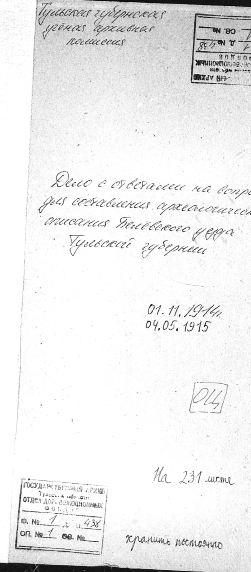 Тульская губернская
ученая архивная
комиссия
Дело с ответами на вопро
для составления археологическ
описания Белевского уезда
Тульской губернии
01.11.1914г.
04.05.1915
ОЦ
На 231 листе
хранить постоянно
ГОСУДАРСТВЕННЫЙ АРХИВ
ОТДЕЛ ДОРЕВОЛЮЦИОННЫХ
ФОНДОВ
Ф. № 1 Д. № 438
ОП. № 1 СВ. №